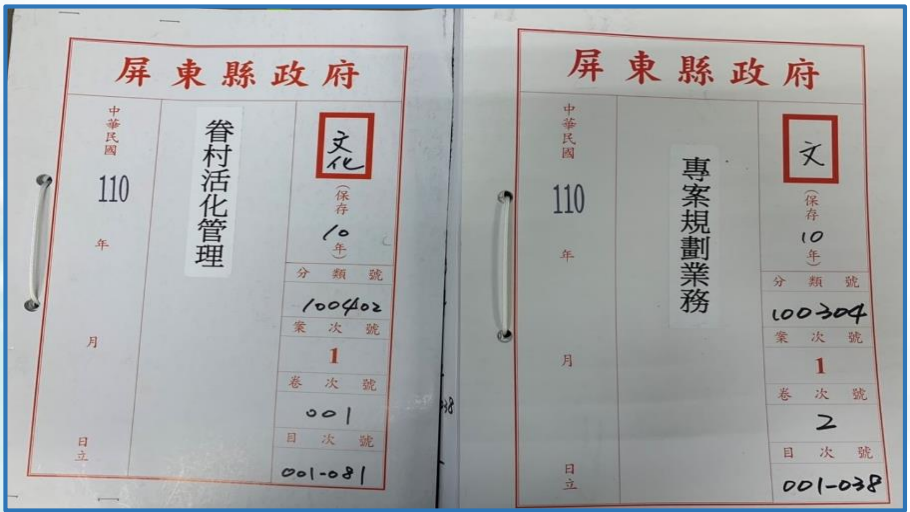 屏東縣政府
中華民國
110
年
月
日立
眷村活化管理
文化
(保存
10
年)
分類號
100402
案次號
1
卷次號
001
目次號
001-081
屏東縣政府
中華民國
110
年
月
日立
專案規劃業務
文
(保存
10
年)
分類號
100304
案次號
1
卷次號
2
目次號
001-038